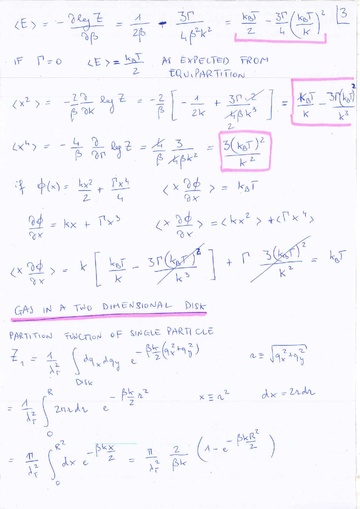 3
<E> = -∂ log Z/∂β = 1/2β - 3Γ/4β²k² = k_BT/2 - 3Γ/4 (k_BT/k)²
IF Γ=0 <E> = k_BT/2 AS EXPECTED FROM
EQUIPARTITION
<x²> = -2/β ∂/∂k log Z = -2/β [ -1/2k + 3Γ·2/4βk³ ] = k_BT/k - 3Γ(k_BT)²/k³
<x⁴> = -4/β ∂/∂Γ log Z = 4/β 3/4βk² = 3(k_BT)²/k²
if ϕ(x) = kx²/2 + Γx⁴/4 <x ∂ϕ/∂x> = k_BT
∂ϕ/∂x = kx + Γx³ <x ∂ϕ/∂x> = <kx²> + <Γx⁴>
<x ∂ϕ/∂x> = k [ k_BT/k - 3Γ(k_BT)²/k³ ] + Γ 3(k_BT)²/k² = k_BT
GAS IN A TWO DIMENSIONAL DISK
PARTITION FUNCTION OF SINGLE PARTICLE
Z₁ = 1/λ_T² ∫_DISK dq_x dq_y e^{-βk/2 (q_x²+q_y²)} r ≡ √(q_x²+q_y²)
= 1/λ_T² ∫_0^R 2πr dr e^{-βk/2 r²} x ≡ r² dx = 2r dr
= π/λ_T² ∫_0^{R²} dx e^{-βkx/2} = π/λ_T² 2/βk (1 - e^{-βkR²/2})